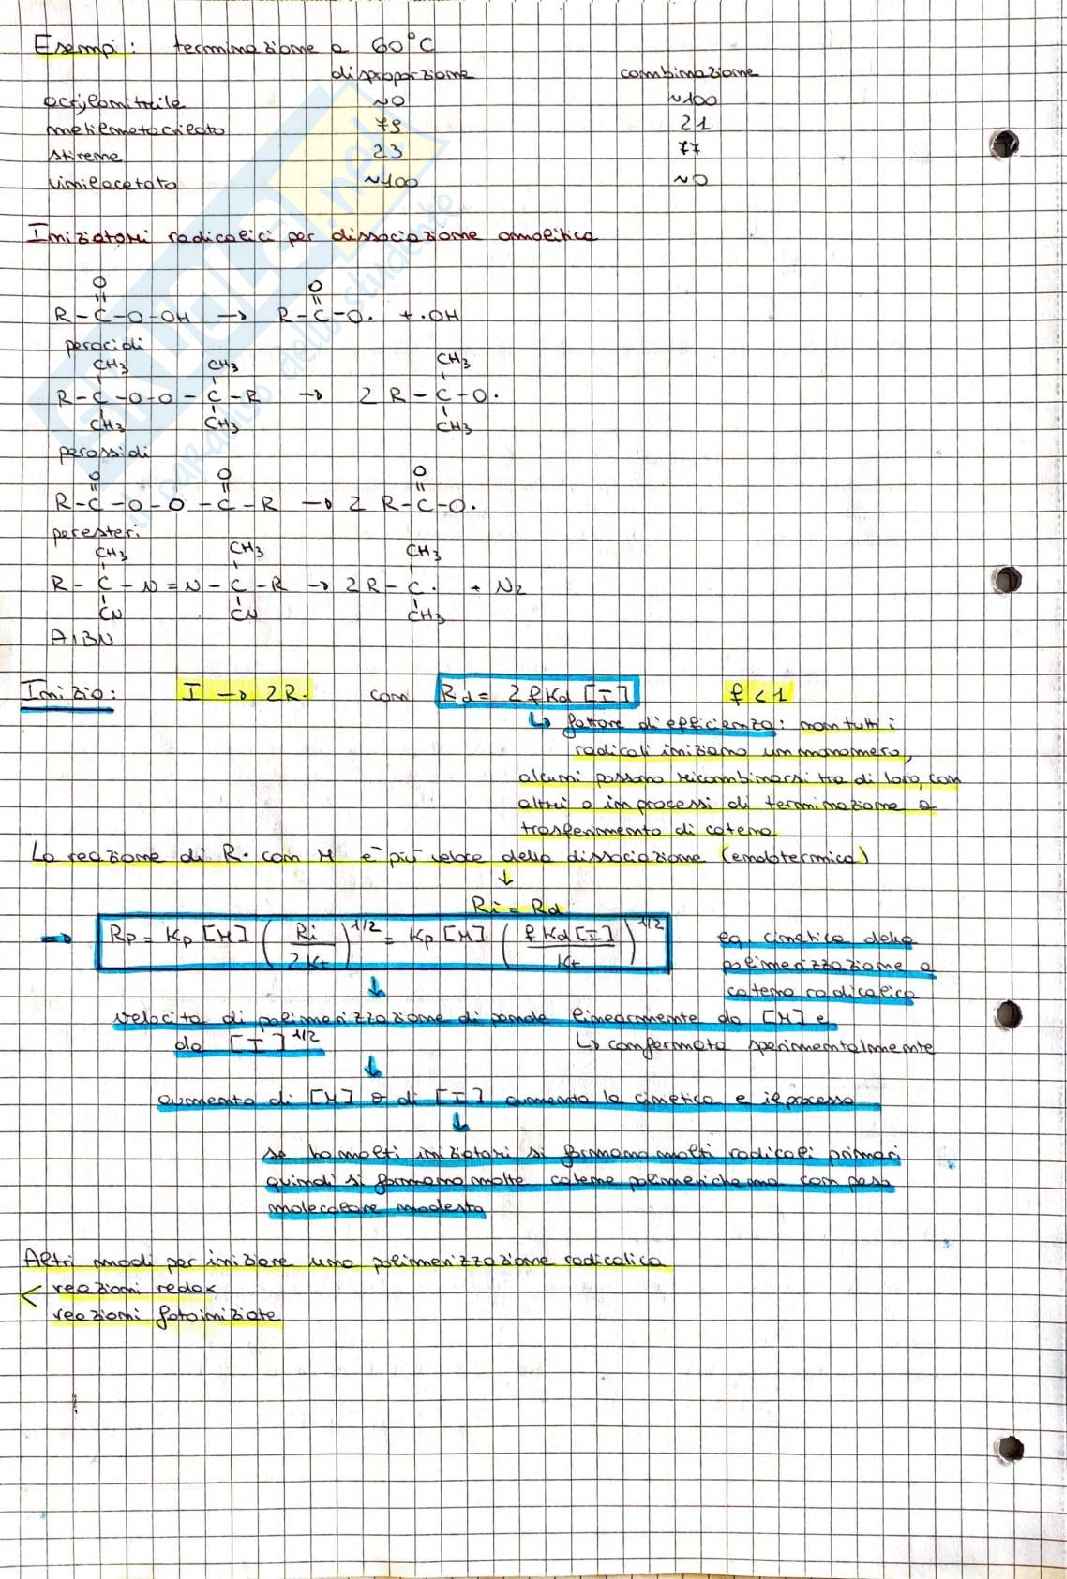 Esempi: terminazione a 60°C
disproporzione combinazione
acrilonitrile ~0 ~100
metilmetacrilato 79 21
stirene 23 77
vinilacetato ~100 ~0
Iniziatori radicalici per dissociazione omolitica
O O
R-C-O-OH → R-C-O· + ·OH
peracidi
CH3 CH3 CH3
R-C-O-O-C-R → 2 R-C-O·
CH3 CH3 CH3
perossidi
O O O
R-C-O-O-C-R → 2 R-C-O·
peresteri
CH3 CH3 CH3
R-C-N=N-C-R → 2R-C· + N2
CN CN CH3
AIBN
Inizio: I → 2R· con Rd = 2fKd[I] f<1
↳ fattore di efficienza: non tutti i
radicali iniziano un monomero,
alcuni possono ricombinarsi tra di loro, con
altri o in processi di terminazione o
trasferimento di catena
La reazione di R· con M è più veloce della dissociazione (endotermica)
↓
Ri = Rd
→ Rp = Kp[M](Ri/2Kt)^1/2 = Kp[M](fKd[I]/Kt)^1/2 eq. cinetica della
polimerizzazione a
catena radicalica
↓
velocità di polimerizzazione dipende linearmente da [M] e
da [I]^1/2 ↳ confermata sperimentalmente
↓
aumento di [M] o di [I] aumenta la cinetica e il processo
↓
se ho molti iniziatori si formano molti radicali primari
quindi si formano molte catene polimeriche ma con peso
molecolare modesto
Altri modi per iniziare una polimerizzazione radicalica
< reazioni redox
reazioni fotoiniziate